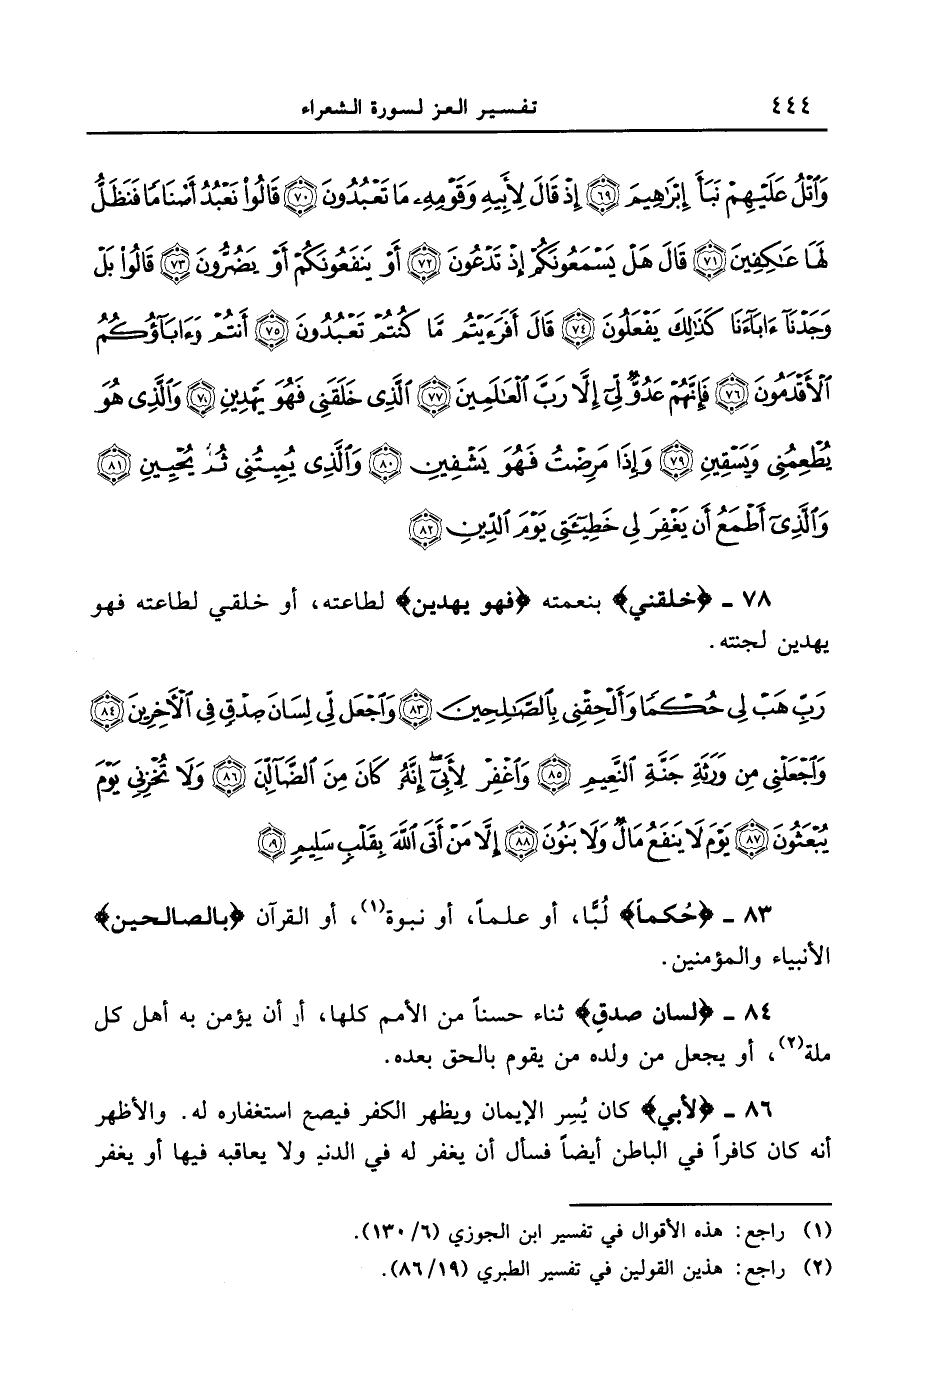 ٤٤٤ تفسير العز لسورة الشعراء
وَٱتۡلُ عَلَيۡهِمۡ نَبَأَ إِبۡرَٰهِيمَ ٦٩ إِذۡ قَالَ لِأَبِيهِ وَقَوۡمِهِۦ مَا تَعۡبُدُونَ ٧٠ قَالُواْ نَعۡبُدُ أَصۡنَامٗا فَنَظَلُّ
لَهَا عَٰكِفِينَ ٧١ قَالَ هَلۡ يَسۡمَعُونَكُمۡ إِذۡ تَدۡعُونَ ٧٢ أَوۡ يَنفَعُونَكُمۡ أَوۡ يَضُرُّونَ ٧٣ قَالُواْ بَلۡ
وَجَدۡنَآ ءَابَآءَنَا كَذَٰلِكَ يَفۡعَلُونَ ٧٤ قَالَ أَفَرَءَيۡتُم مَّا كُنتُمۡ تَعۡبُدُونَ ٧٥ أَنتُمۡ وَءَابَآؤُكُمُ
ٱلۡأَقۡدَمُونَ ٧٦ فَإِنَّهُمۡ عَدُوّٞ لِّيٓ إِلَّا رَبَّ ٱلۡعَٰلَمِينَ ٧٧ ٱلَّذِي خَلَقَنِي فَهُوَ يَهۡدِينِ ٧٨ وَٱلَّذِي هُوَ
يُطۡعِمُنِي وَيَسۡقِينِ ٧٩ وَإِذَا مَرِضۡتُ فَهُوَ يَشۡفِينِ ٨٠ وَٱلَّذِي يُمِيتُنِي ثُمَّ يُحۡيِينِ ٨١
وَٱلَّذِيٓ أَطۡمَعُ أَن يَغۡفِرَ لِي خَطِيٓـَٔتِي يَوۡمَ ٱلدِّينِ ٨٢
٧٨ ـ ﴿خلقني﴾ بنعمته ﴿فهو يهدين﴾ لطاعته، أو خلقي لطاعته فهو
يهدين لجنته.
رَبِّ هَبۡ لِي حُكۡمٗا وَأَلۡحِقۡنِي بِٱلصَّٰلِحِينَ ٨٣ وَٱجۡعَل لِّي لِسَانَ صِدۡقٖ فِي ٱلۡأٓخِرِينَ ٨٤
وَٱجۡعَلۡنِي مِن وَرَثَةِ جَنَّةِ ٱلنَّعِيمِ ٨٥ وَٱغۡفِرۡ لِأَبِيٓ إِنَّهُۥ كَانَ مِنَ ٱلضَّآلِّينَ ٨٦ وَلَا تُخۡزِنِي يَوۡمَ
يُبۡعَثُونَ ٨٧ يَوۡمَ لَا يَنفَعُ مَالٞ وَلَا بَنُونَ ٨٨ إِلَّا مَنۡ أَتَى ٱللَّهَ بِقَلۡبٖ سَلِيمٖ ٨٩
٨٣ ـ ﴿حُكماً﴾ لُبًّا، أو علماً، أو نبوة(١)، أو القرآن ﴿بالصالحين﴾
الأنبياء والمؤمنين.
٨٤ ـ ﴿لسان صدقٍ﴾ ثناء حسناً من الأمم كلها، أو أن يؤمن به أهل كل
ملة(٢)، أو يجعل من ولده من يقوم بالحق بعده.
٨٦ ـ ﴿لأبي﴾ كان يُسِر الإيمان ويظهر الكفر فيصح استغفاره له. والأظهر
أنه كان كافراً في الباطن أيضاً فسأل أن يغفر له في الدنيا ولا يعاقبه فيها أو يغفر
(١) راجع: هذه الأقوال في تفسير ابن الجوزي (٦/ ١٣٠).
(٢) راجع: هذين القولين في تفسير الطبري (١٩/ ٨٦).